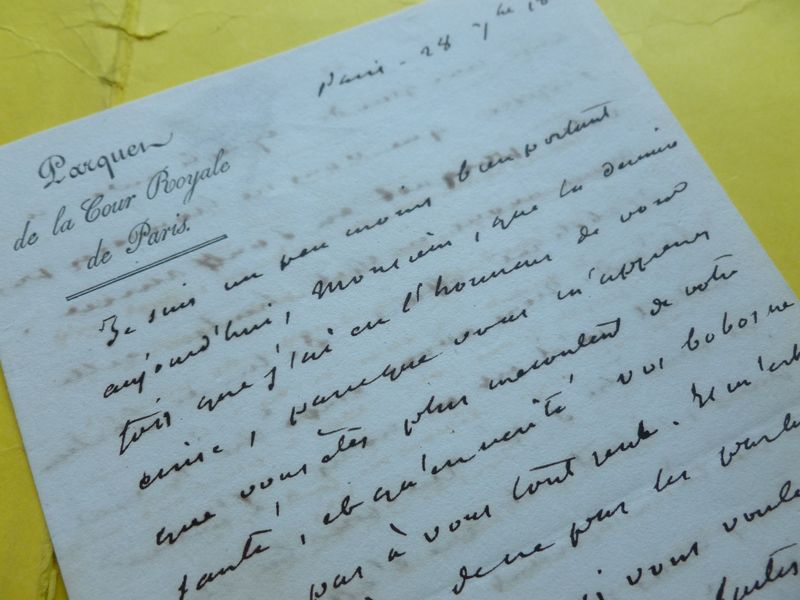 Paris - 28 7bre 18
Parquet
de la Cour Royale
de Paris.
Je suis un peu moins bien portant
aujourd'hui, Monsieur, que la dernière
fois que j'ai eu l'honneur de vous
écrire, parceque vous m'apprenez
que vous êtes plus mécontent de votre
santé, et qu'en vérité vos bobos ne
pas à vous tout seul. Je m'
pour les
vous